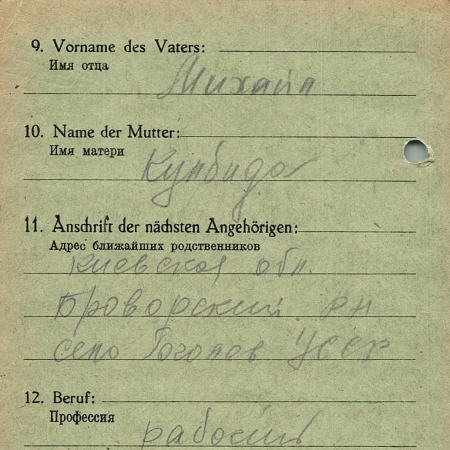 9. Vorname des Vaters:
Имя отца
Михайл
10. Name der Mutter:
Имя матери
Кулбида
11. Anschrift der nächsten Angehörigen:
Адрес ближайших родственников
Киевская обл.
Броворский рн
село Гоголев
12. Beruf:
Профессия